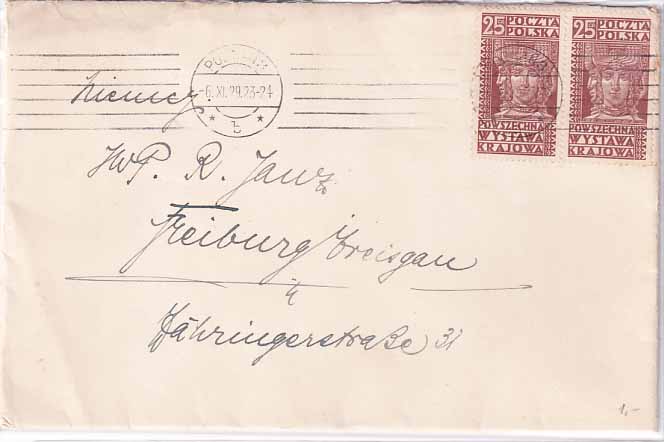 25 POCZTA POLSKA
POWSZECHNA
WYSTAWA
KRAJOWA
25 POCZTA POLSKA
POWSZECHNA
WYSTAWA
KRAJOWA
-6.XI.29.23-24
* b *
Niemcy
WP. R. Janz
Freiburg Breisgau
Zähringerstraße 31
1,-